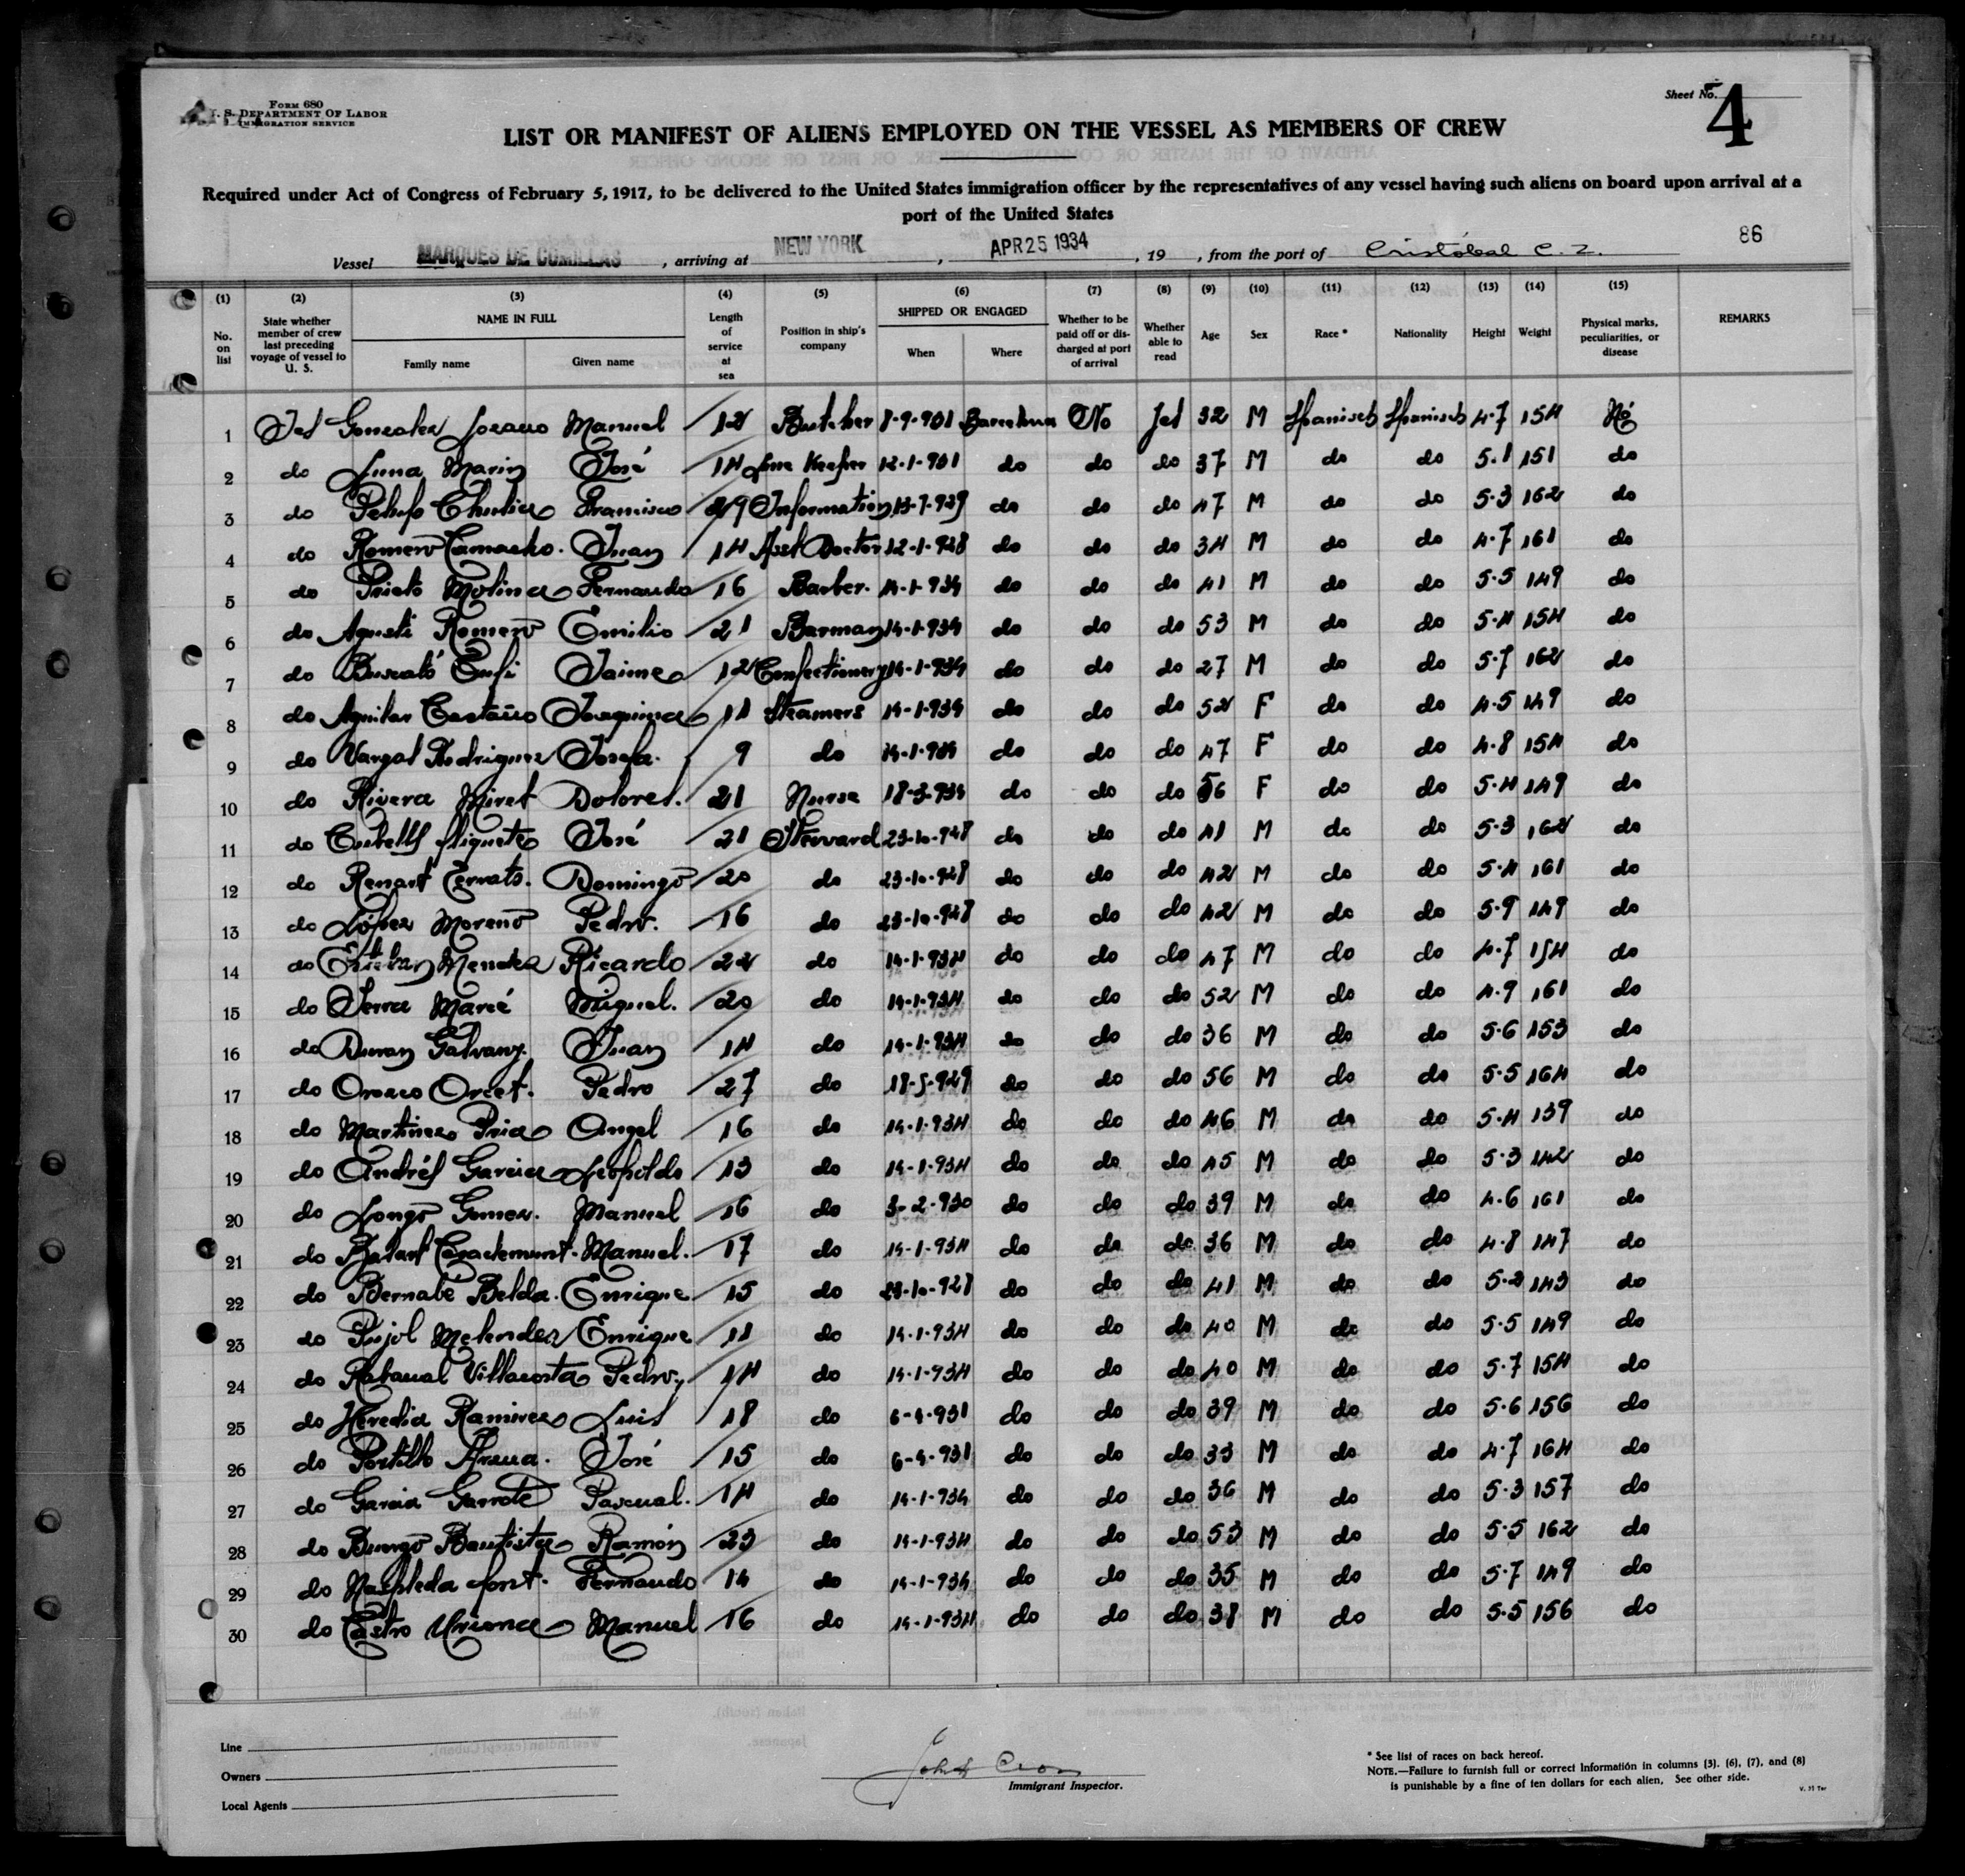 Form 680
U. S. DEPARTMENT OF LABOR
IMMIGRATION SERVICE
Sheet No. 4
LIST OR MANIFEST OF ALIENS EMPLOYED ON THE VESSEL AS MEMBERS OF CREW
Required under Act of Congress of February 5, 1917, to be delivered to the United States immigration officer by the representatives of any vessel having such aliens on board upon arrival at a
port of the United States
86
Vessel MARQUES DE COMILLAS, arriving at NEW YORK, APR 25 1934, 19 , from the port of Cristóbal C. Z.
(1) (2) (3) (4) (5) (6) (7) (8) (9) (10) (11) (12) (13) (14) (15)
No. on list | State whether member of crew last preceding voyage of vessel to U. S. | NAME IN FULL Family name Given name | Length of service at sea | Position in ship's company | SHIPPED OR ENGAGED When Where | Whether to be paid off or discharged at port of arrival | Whether able to read | Age | Sex | Race * | Nationality | Height | Weight | Physical marks, peculiarities, or disease | REMARKS
1 Jes Gonzalez Lozano Manuel 12 Butcher 8-9-901 Barcelona No Jes 32 M Spanisch Spanisch 4-7 154 No
2 do Luna Marin José 14 Keeper 12-1-901 do do do 37 M do do 5.1 151 do
3 do Pelufo Chulia Francisco 29 Information 13-7-929 do do do 47 M do do 5-3 162 do
4 do Romero Camacho. Juan 14 Asst Doctor 12-1-928 do do do 34 M do do 4-7 161 do
5 do Prieto Molina Fernando 16 Barber. 14-1-934 do do do 41 M do do 5-5 149 do
6 do Agusti Romero Emilio 21 Barman 14-1-934 do do do 53 M do do 5-4 154 do
7 do Jaime 12 Confectionery 14-1-934 do do do 27 M do do 5-7 162 do
8 do Aguilar Castaño Joaquina 11 Steamers 14-1-934 do do do 52 F do do 4-5 149 do
9 do Vargas Rodriguez Josefa. 9 do 14-1-934 do do do 47 F do do 4-8 154 do
10 do Rivera Miret Dolores. 21 Nurse 18-3-934 do do do 56 F do do 5-4 149 do
11 do Cubells José 21 Stervard 23-10-928 do do do 41 M do do 5-3 162 do
12 do Renart Cerrato. Domingo 20 do 23-10-928 do do do 42 M do do 5-4 161 do
13 do López Moreno Pedro. 16 do 23-10-928 do do do 42 M do do 5-9 149 do
14 do Esteban Mendez Ricardo 22 do 14-1-934 do do do 47 M do do 4-7 154 do
15 do Serra Marcé Miguel. 20 do 14-1-934 do do do 52 M do do 4-9 161 do
16 do Duran Galvany. Juan 14 do 14-1-934 do do do 36 M do do 5-6 153 do
17 do Orozco Orcet. Pedro 27 do 18-5-929 do do do 56 M do do 5-5 164 do
18 do Martinez Pria Angel 16 do 14-1-934 do do do 46 M do do 5-4 139 do
19 do Andrés Garcia Leopoldo 13 do 14-1-934 do do do 45 M do do 5-3 142 do
20 do Longo Gomez. Manuel 16 do 3-2-930 do do do 39 M do do 4-6 161 do
21 do Manuel. 17 do 14-1-934 do do do 36 M do do 4-8 147 do
22 do Bernabé Belda. Enrique 15 do 23-10-928 do do do 41 M do do 5-2 143 do
23 do Pujol Melendez Enrique 11 do 14-1-934 do do do 40 M do do 5-5 149 do
24 do Rabanal Villacorta Pedro. 14 do 14-1-934 do do do 40 M do do 5-7 154 do
25 do Heredia Ramirez Luis 18 do 6-4-931 do do do 39 M do do 5-6 156 do
26 do Portillo Arena. José 15 do 6-4-931 do do do 33 M do do 4-7 164 do
27 do Garcia Garrote Pascual. 14 do 14-1-934 do do do 36 M do do 5-3 157 do
28 do Burgo Bautista Ramón 23 do 14-1-934 do do do 53 M do do 5-5 162 do
29 do Font. Fernando 14 do 14-1-934 do do do 35 M do do 5-7 149 do
30 do Castro Uriona Manuel 16 do 14-1-934 do do do 38 M do do 5-5 156 do
Line
Owners
Local Agents
Immigrant Inspector.
* See list of races on back hereof.
NOTE.—Failure to furnish full or correct information in columns (3), (6), (7), and (8)
is punishable by a fine of ten dollars for each alien. See other side.